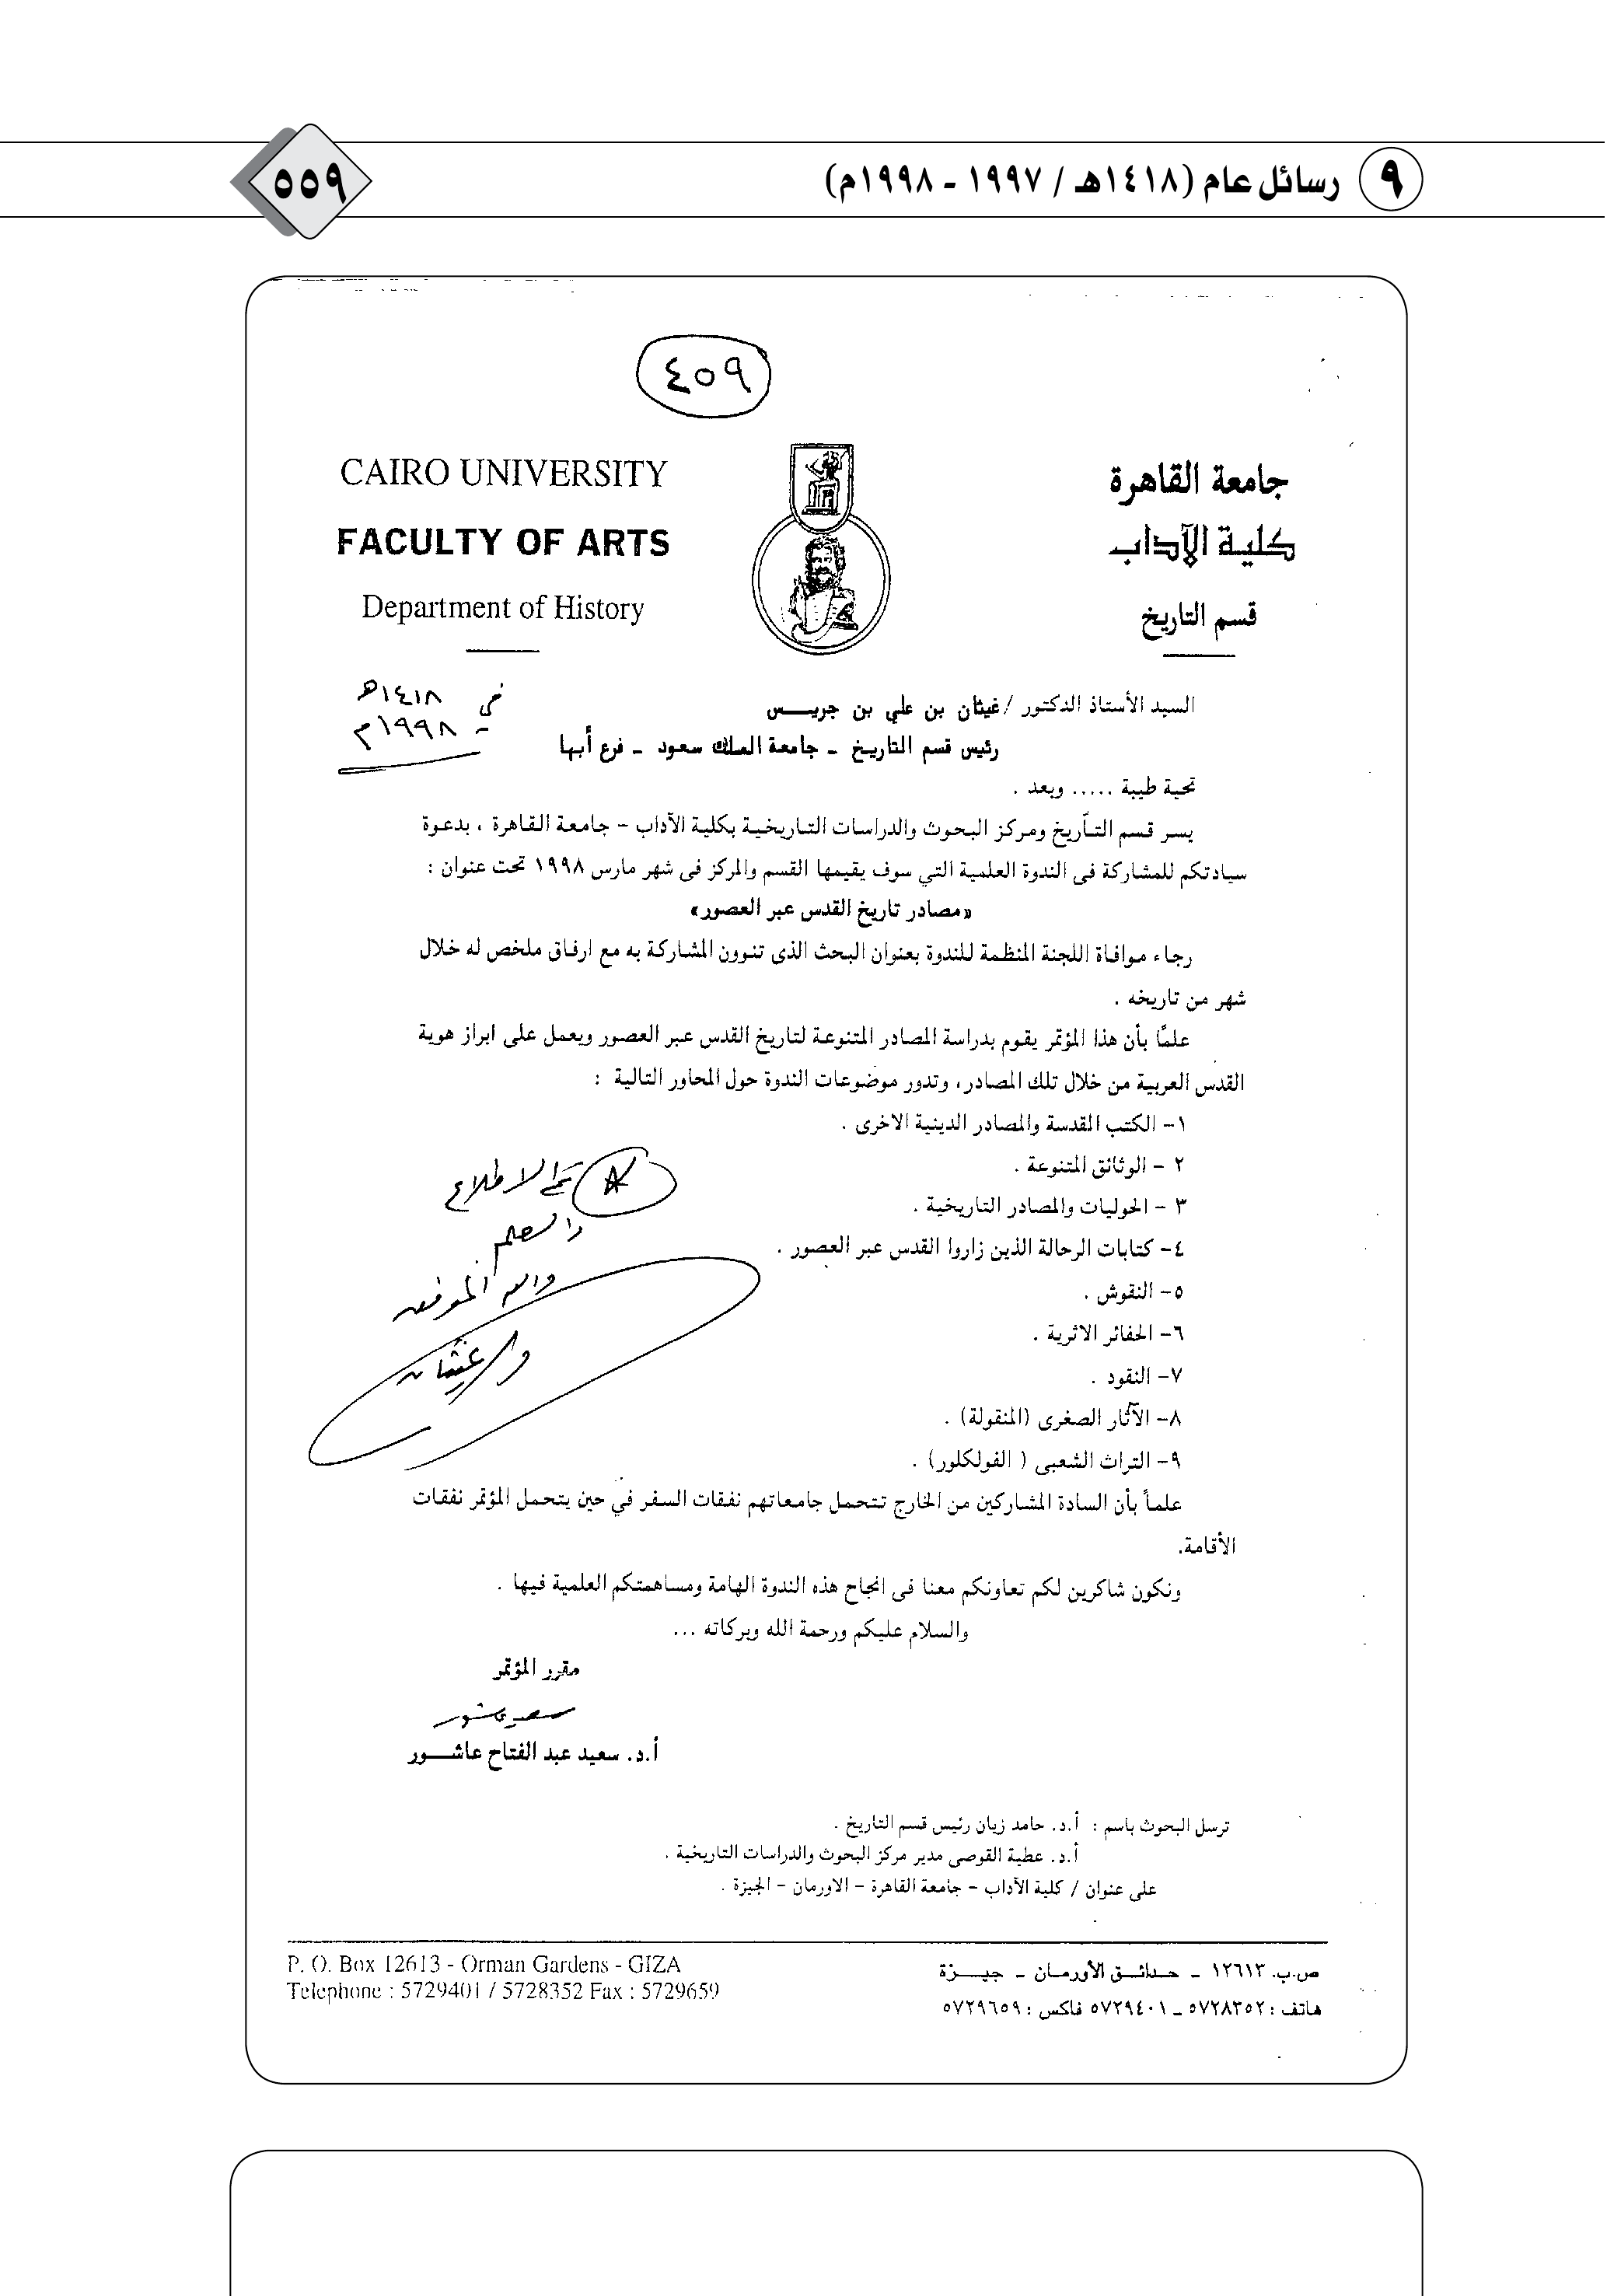 ٩ رسائل عام (١٤١٨هـ / ١٩٩٧ - ١٩٩٨م)
٥٥٩
٤٥٩
جامعة القاهرة
كلية الآداب
قسم التاريخ
CAIRO UNIVERSITY
FACULTY OF ARTS
Department of History
في ١٤١٨هـ
١٩٩٨م
السيد الأستاذ الدكتور / غيثان بن علي بن جريـــس
رئيس قسم التاريخ - جامعة الملك سعود - فرع أبها
تحية طيبة ..... وبعد .
يسر قسم التأريخ ومركز البحوث والدراسات التاريخية بكلية الآداب - جامعة القاهرة ، بدعوة
سيادتكم للمشاركة فى الندوة العلمية التي سوف يقيمها القسم والمركز فى شهر مارس ١٩٩٨ تحت عنوان :
«مصادر تاريخ القدس عبر العصور»
رجاء موافاة اللجنة المنظمة للندوة بعنوان البحث الذى تنوون المشاركة به مع ارفاق ملخص له خلال
شهر من تاريخه .
علمًا بأن هذا المؤتمر يقوم بدراسة المصادر المتنوعة لتاريخ القدس عبر العصور ويعمل على ابراز هوية
القدس العربية من خلال تلك المصادر، وتدور موضوعات الندوة حول المحاور التالية :
١- الكتب المقدسة والمصادر الدينية الاخرى .
٢ - الوثائق المتنوعة .
٣ - الحوليات والمصادر التاريخية .
٤- كتابات الرحالة الذين زاروا القدس عبر العصور .
٥- النقوش .
٦- الحفائر الاثرية .
٧- النقود .
٨- الآثار الصغرى (المنقولة) .
٩- التراث الشعبى ( الفولكلور) .
تم الاطلاع
والعلم
والله الموفق
غيثان
علماً بأن السادة المشاركين من الخارج تتحمل جامعاتهم نفقات السفر في حين يتحمل المؤتمر نفقات
الأقامة.
ونكون شاكرين لكم تعاونكم معنا فى انجاح هذه الندوة الهامة ومساهمتكم العلمية فيها .
والسلام عليكم ورحمة الله وبركاته ...
مقرر المؤتمر
سعيد عاشور
أ.د. سعيد عبد الفتاح عاشـــور
ترسل البحوث باسم : أ.د. حامد زيان رئيس قسم التاريخ .
أ.د. عطية القوصى مدير مركز البحوث والدراسات التاريخية .
على عنوان / كلية الآداب - جامعة القاهرة - الاورمان - الجيزة .
ص.ب. ١٢٦١٣ - حـدائـق الأورمـان - جيـــزة
هاتف : ٥٧٢٨٣٥٢ - ٥٧٢٩٤٠١ فاكس : ٥٧٢٩٦٥٩
P. O. Box 12613 - Orman Gardens - GIZA
Telephone : 5729401 / 5728352 Fax : 5729659